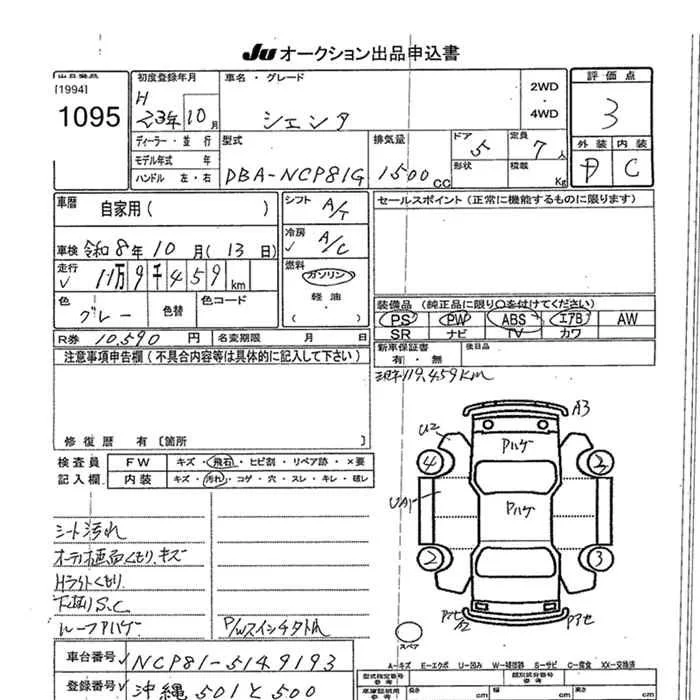 Ju オークション出品申込書
[1994]
1095
初度登録年月
H
23年10月
ディーラー・並行
モデル年式 年
ハンドル 左・右
車名・グレード
シエンタ
2WD
・
4WD
評価点
3
外装 内装
D C
型式
DBA-NCP81G
排気量
1500cc
ドア
5
形状
定員
7人
積載
Kg
車歴
自家用( )
車検 令和8年10月(13日)
走行
✓ 11万9千459km
色
グレー
色替
色コード
R券 10,590円
名変期限 月 日
シフト
A/T
冷房
✓ A/C
燃料
ガソリン
軽油・
( )
セールスポイント(正常に機能するものに限ります)
装備品(純正品に限り○を付けてください)
PS PW ABS エアB AW
SR ナビ TV カワ
新車保証書
有・無
後日品
注意事項申告欄(不具合内容等は具体的に記入して下さい)
修復歴 有〔箇所
119,459km
検査員
記入欄
FW キズ・飛石・ヒビ割・リペア跡・×要
内装 キズ・汚れ・コゲ・穴・スレ・キレ・破レ
シート汚れ
オーディオ画面くもり、キズ
Hライトくもり
下廻りS.C
ルーフアハゲ
P/Wスイッチ
A3
U2
Pハゲ
4
3
UA1
Pハゲ
2
3
Pアセ
スペア
A-キズ E-エクボ U-凹み W-補修跡 S-サビ C-腐食 XX-交換済
車台番号 ✓ NCP81-5149193
登録番号 ✓ 沖縄501と500
型式指定番号
参考
類別区分番号
参考
長さ
cm
幅
cm
高さ
cm